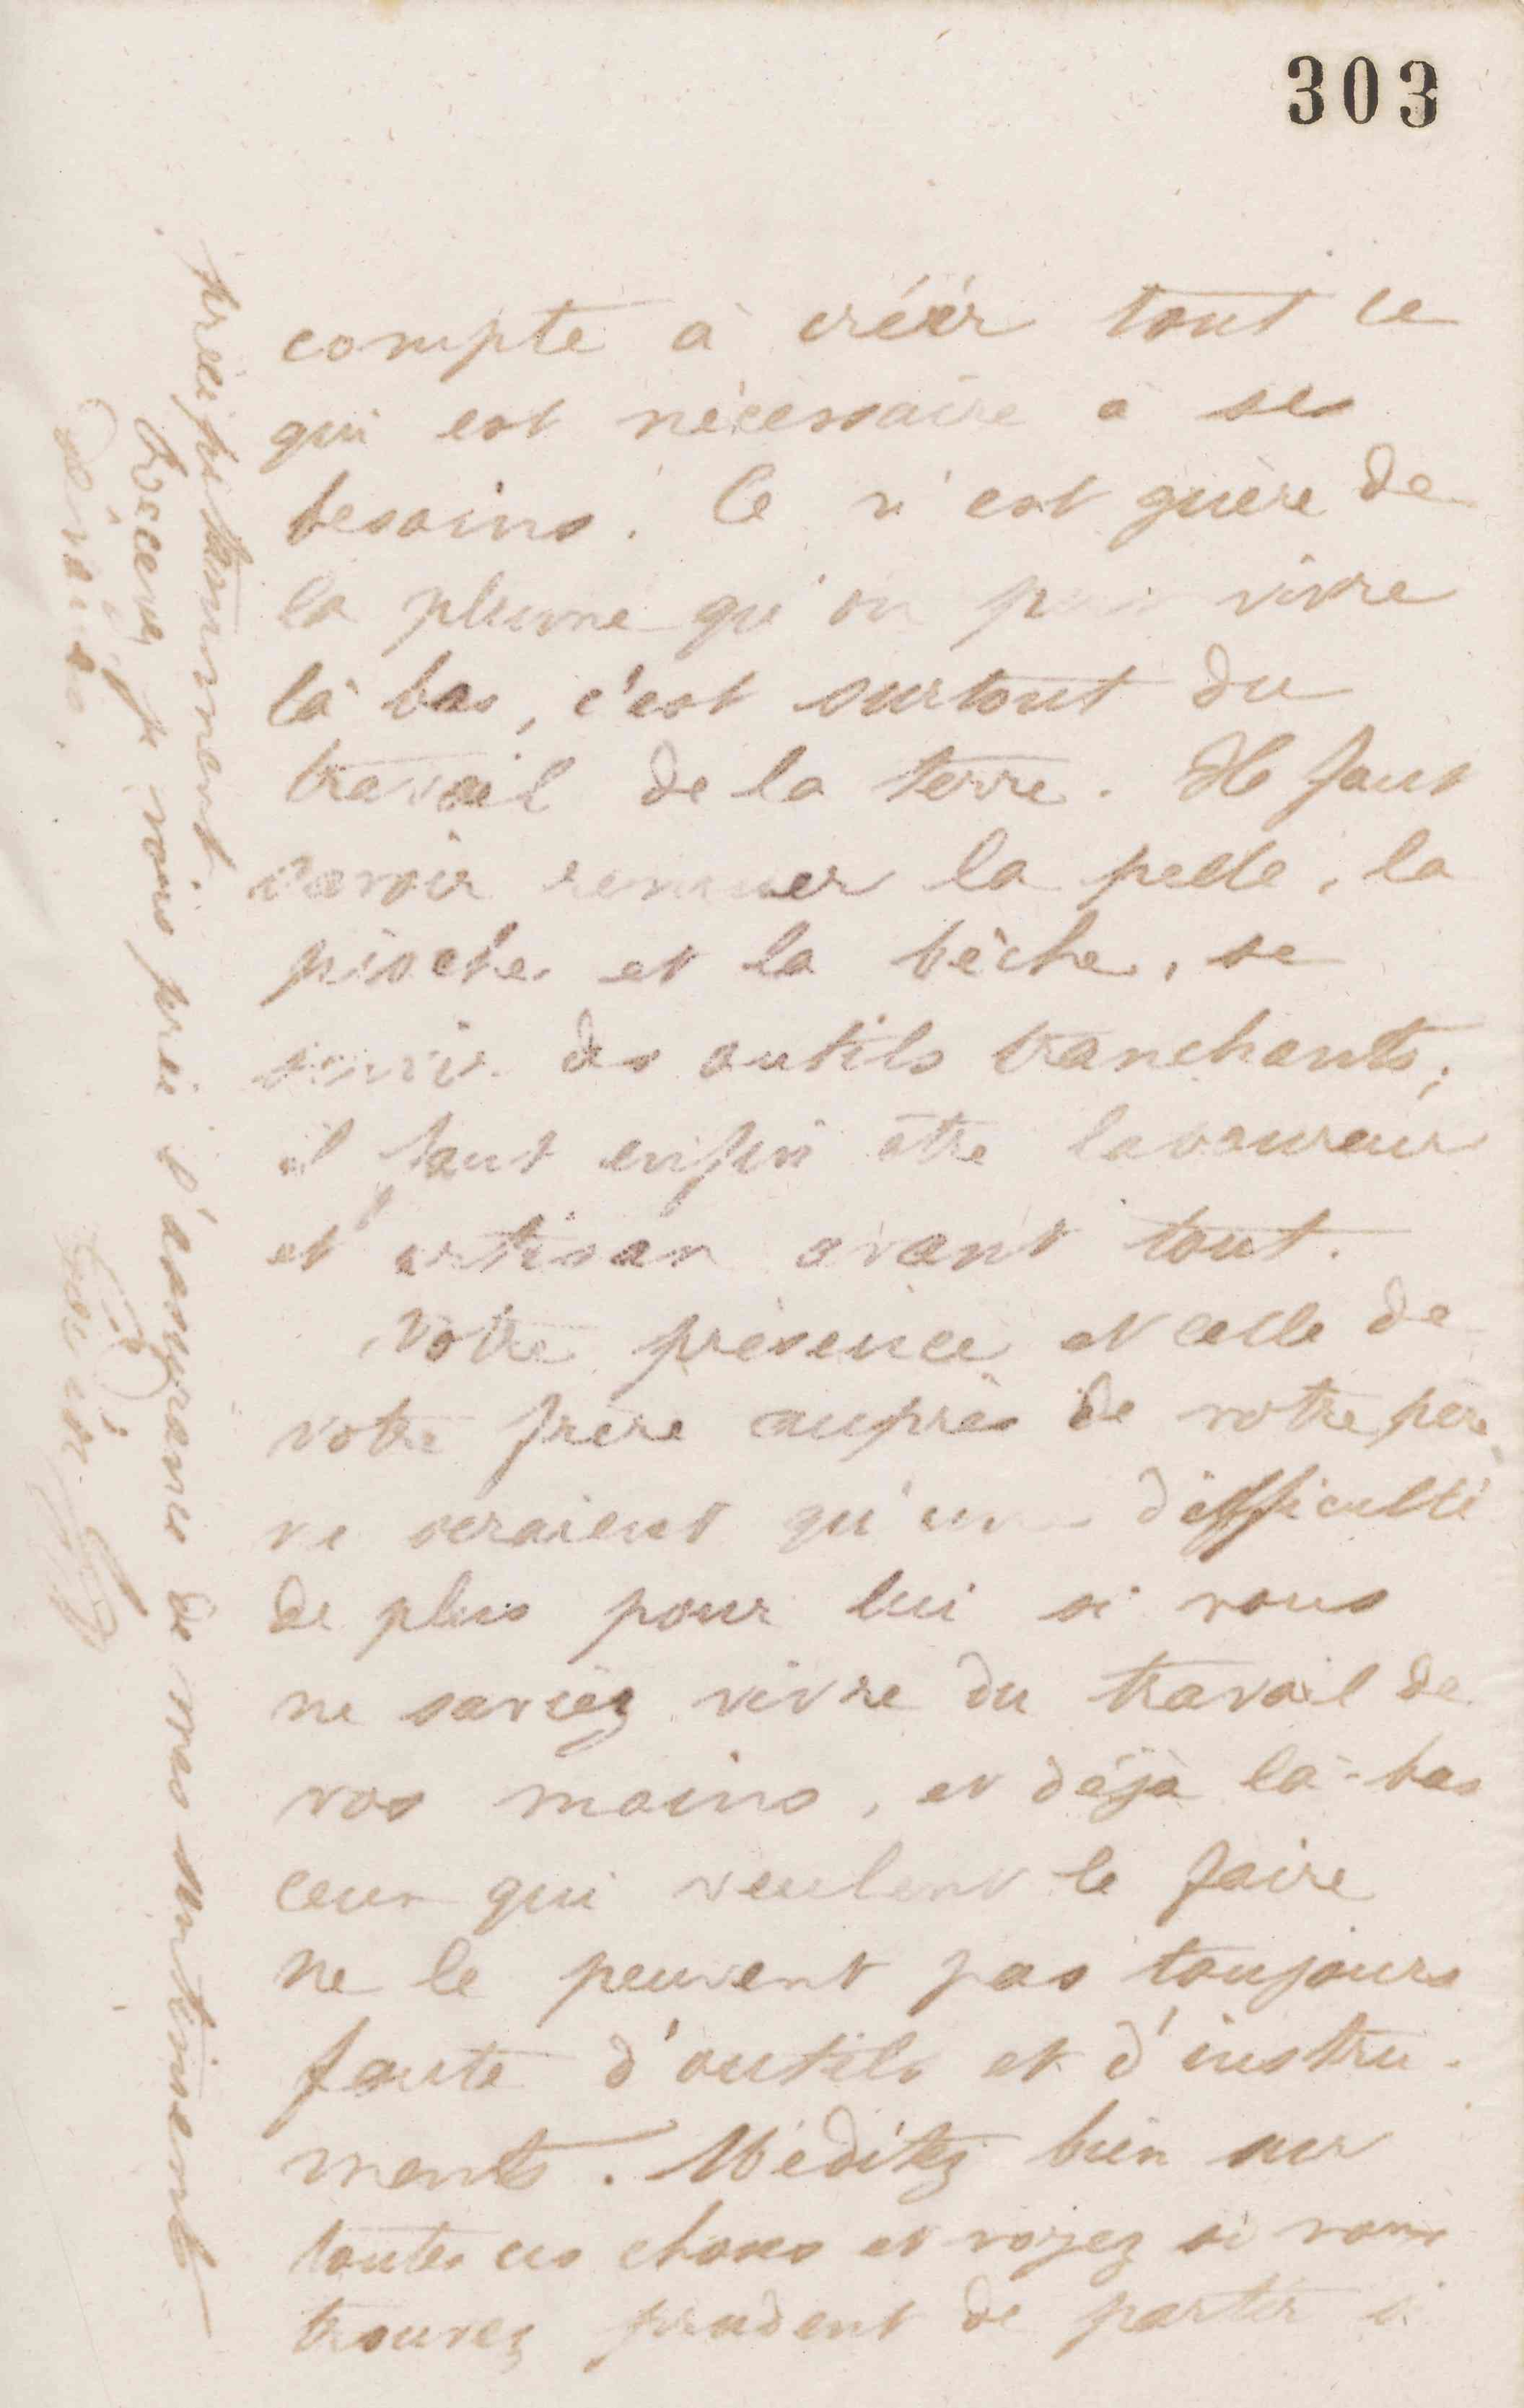 303
compte à créér tout ce
qui est nécessaire à ses
besoins. Ce n'est guère de
la plume qu'on peut vivre
là bas, c'est surtout du
travail de la terre. Il faut
savoir remuer la pelle, la
pioche et la bêche, se
servir des outils tranchants;
il faut enfin être laboureur
et artisan avant tout.
Votre présence et celle de
votre frère auprès de votre père
ne seraient qu'une difficulté
de plus pour lui si vous
ne saviez vivre du travail de
vos mains, et déjà là-bas
ceux qui veulent le faire
ne le peuvent pas toujours
faute d'outils et d'instru-
ments. Méditez bien sur
toutes ces choses et voyez si vous
trouvez prudent de partir si
précipitamment.
Recevez je vous prie l'assurance de mes sentiments
dévoués
Godin